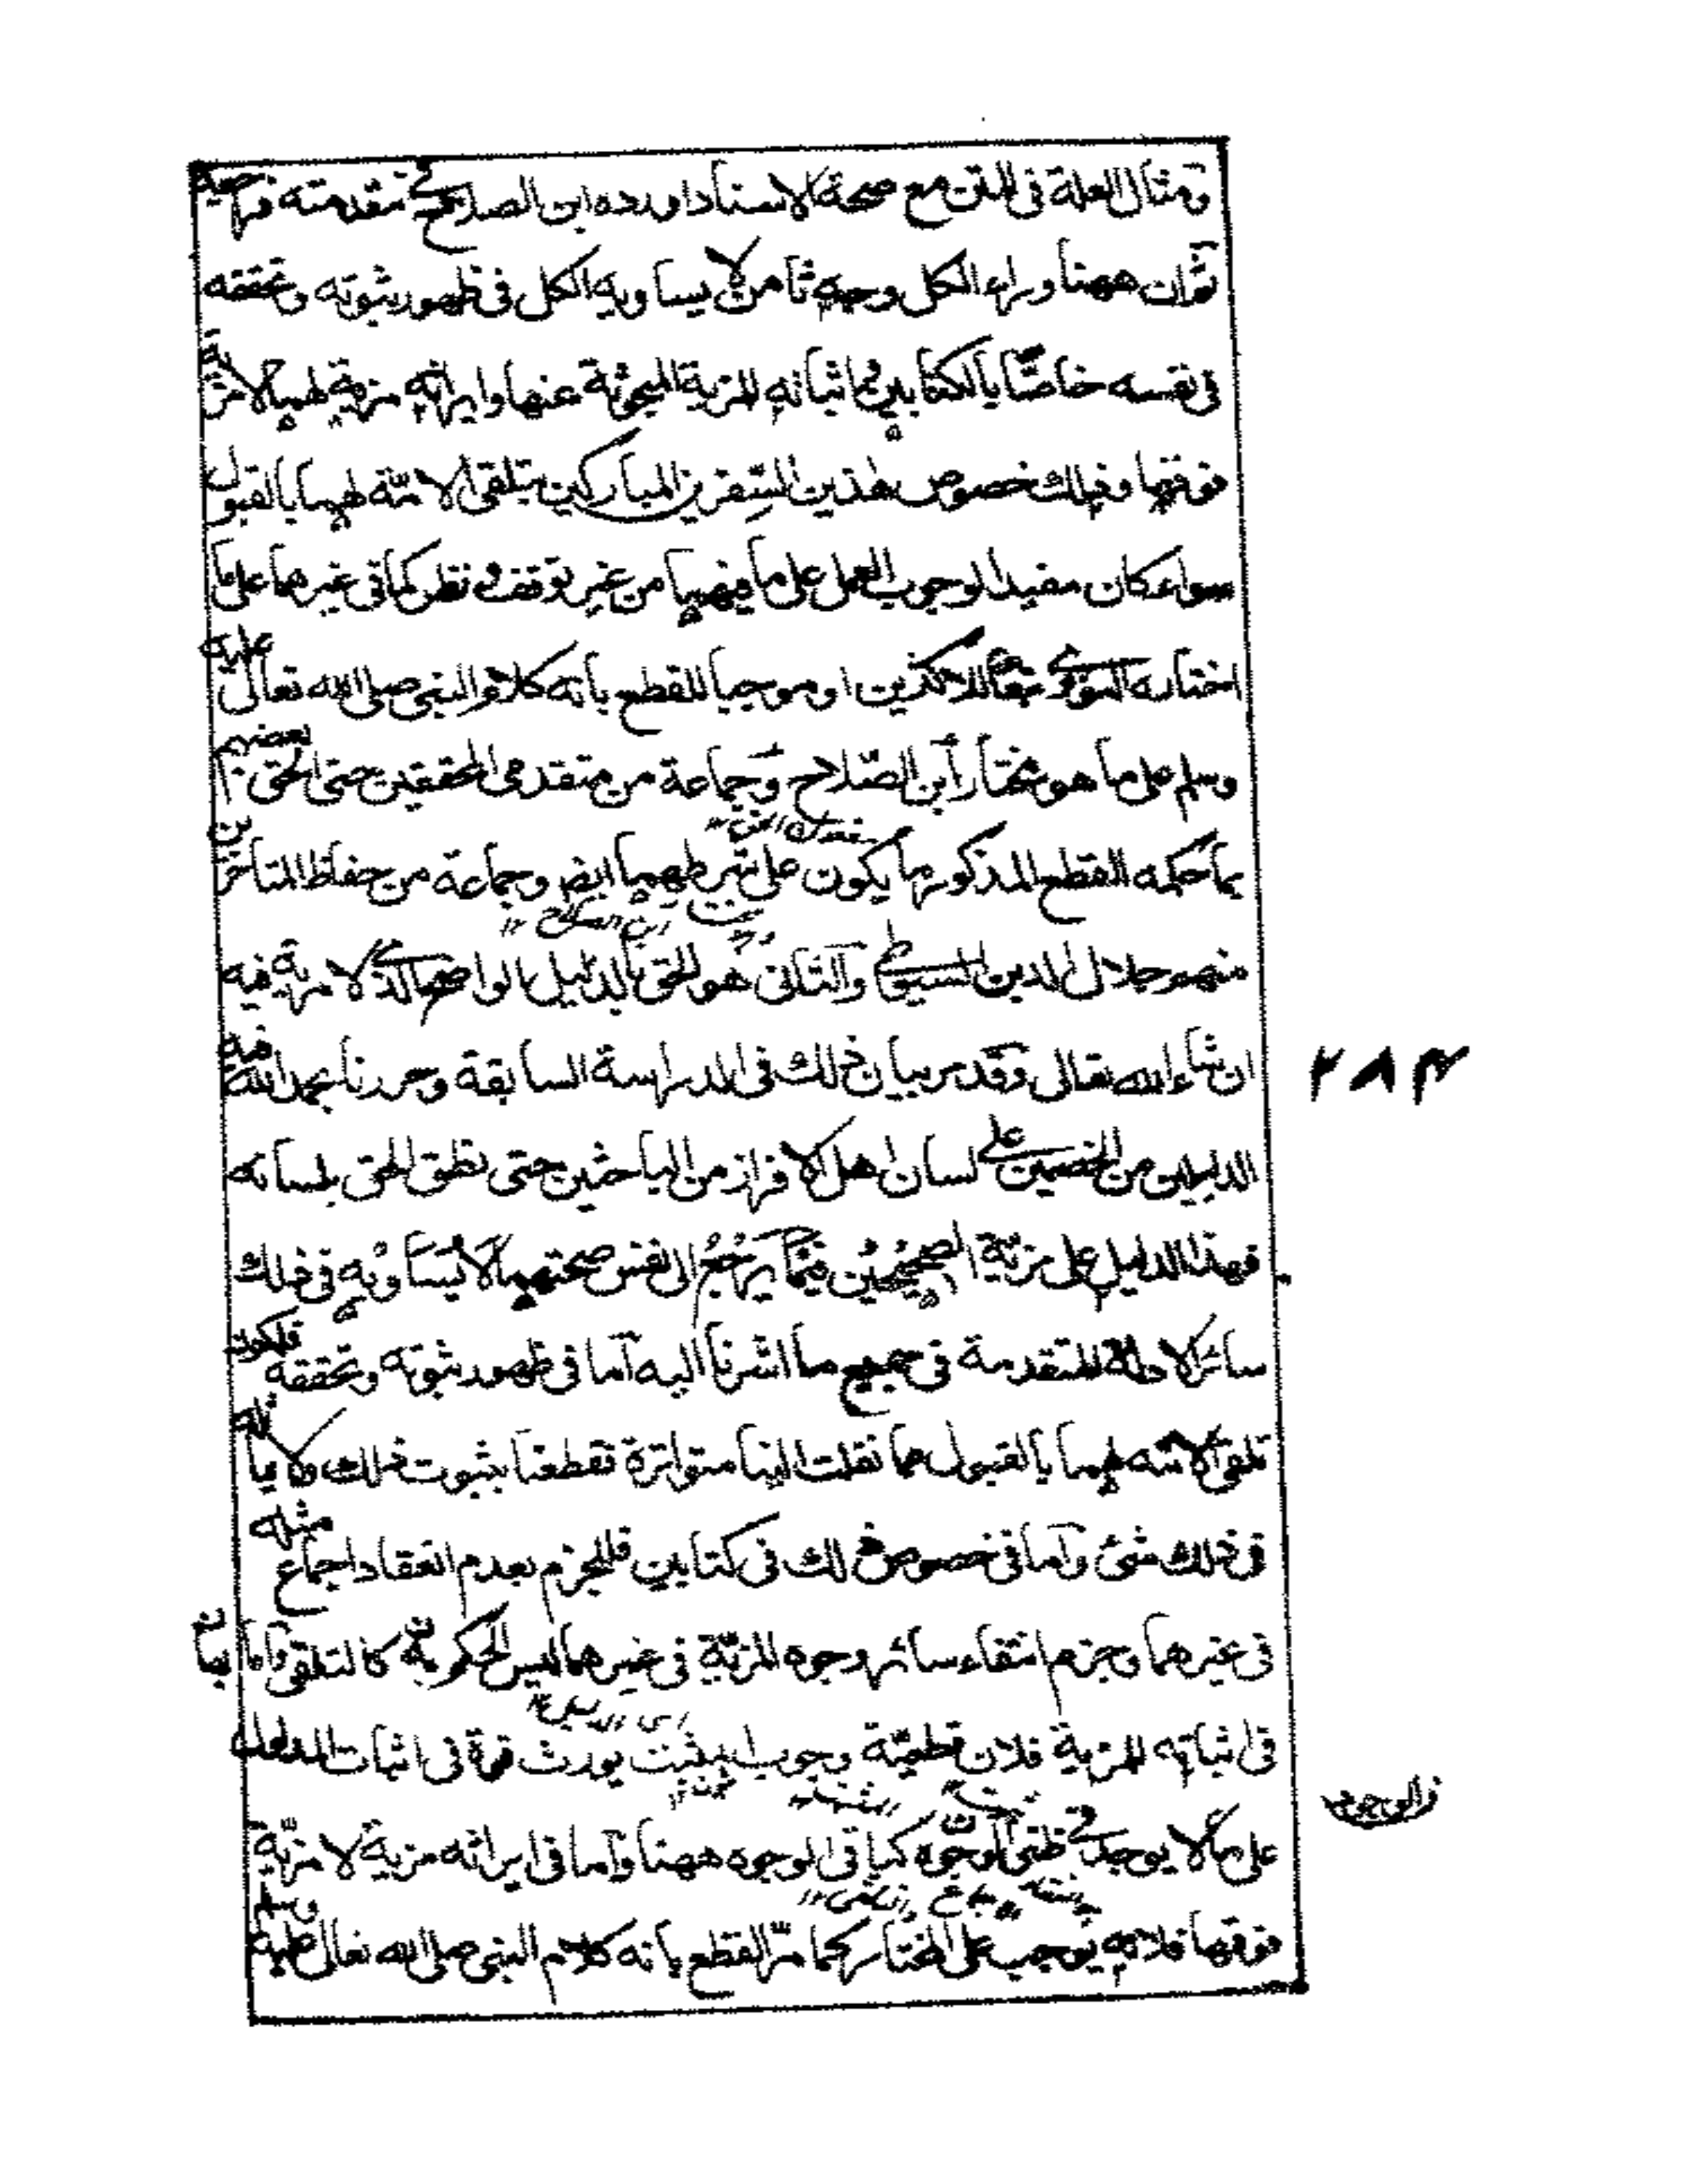 ومثال العلة في المتن مع صحة الاسناد اورده ابن الصلاح في مقدمته فراجعه
ثم ان ههنا وراء الكل وجه ثامن لا يساويه الكل في ظهور ثبوته وتحققه
في نفسه خاصا بالكتابين ثم اثباته للمزية المبحوثة عنها وايراثه مزية لهما لا مزية
فوقها وذلك خصوص هذين السفرين المباركين بتلقي الامة لهما بالقبول
سواء كان مفيدا لوجوب العمل على ما فيهما من غير توقف ونظر كما في غيرهما على ما
اختاره النووي تبعا للاكثرين او موجبا للقطع بانه كلام النبي صلى الله تعالى عليه
وسلم على ما هو مختار ابن الصلاح وجماعة من متقدمي المحققين حتى الحق بعضهم
بما حكمه القطع المذكور ما يكون على شرطهما ايضا وجماعة من حفاظ المتاخرين
منهم جلال الدين السيوطي والثاني هو الحق بالدليل الواضح الذي لا مرية فيه
ان شاء الله تعالى وقد مر بيان ذلك في الدراسة السابقة وحررنا بحمد الله فيه
٢٨٣
الدليلين من الخصمين على لسان اهل الافراز من الباحثين حتى نطق الحق بلسانه
فهذا الدليل على مزية الصحيحين فيما يرجع الى نفس صحتهما لا يساويه في ذلك
سائر الادلة المتقدمة في جميع ما اشرنا اليه اما في ظهور ثبوته وتحققه فلكون
تلقي الامة لهما بالقبول مما نقلت الينا متواترة فقطعنا بثبوت ذلك ولا يماثله
في ذلك شئ واما في خصوص ذلك في كتابين فللجزم بعدم انعقاد اجماع مثله
في غيرهما وجزم انتفاء سائر وجوه المزية في غيرهما ليس الحكم به كالتلقي واما
في اثباته للمزية فلان قطعية وجوب المثبت يورث قوة في اثبات المدلول
على ما لا يوجد في ظني الوجوه كباقي الوجوه ههنا واما في ايراثه مزية لا مزية
فوقها فلانه يوجب على المختار كما مر القطع بانه كلام النبي صلى الله تعالى عليه وسلم